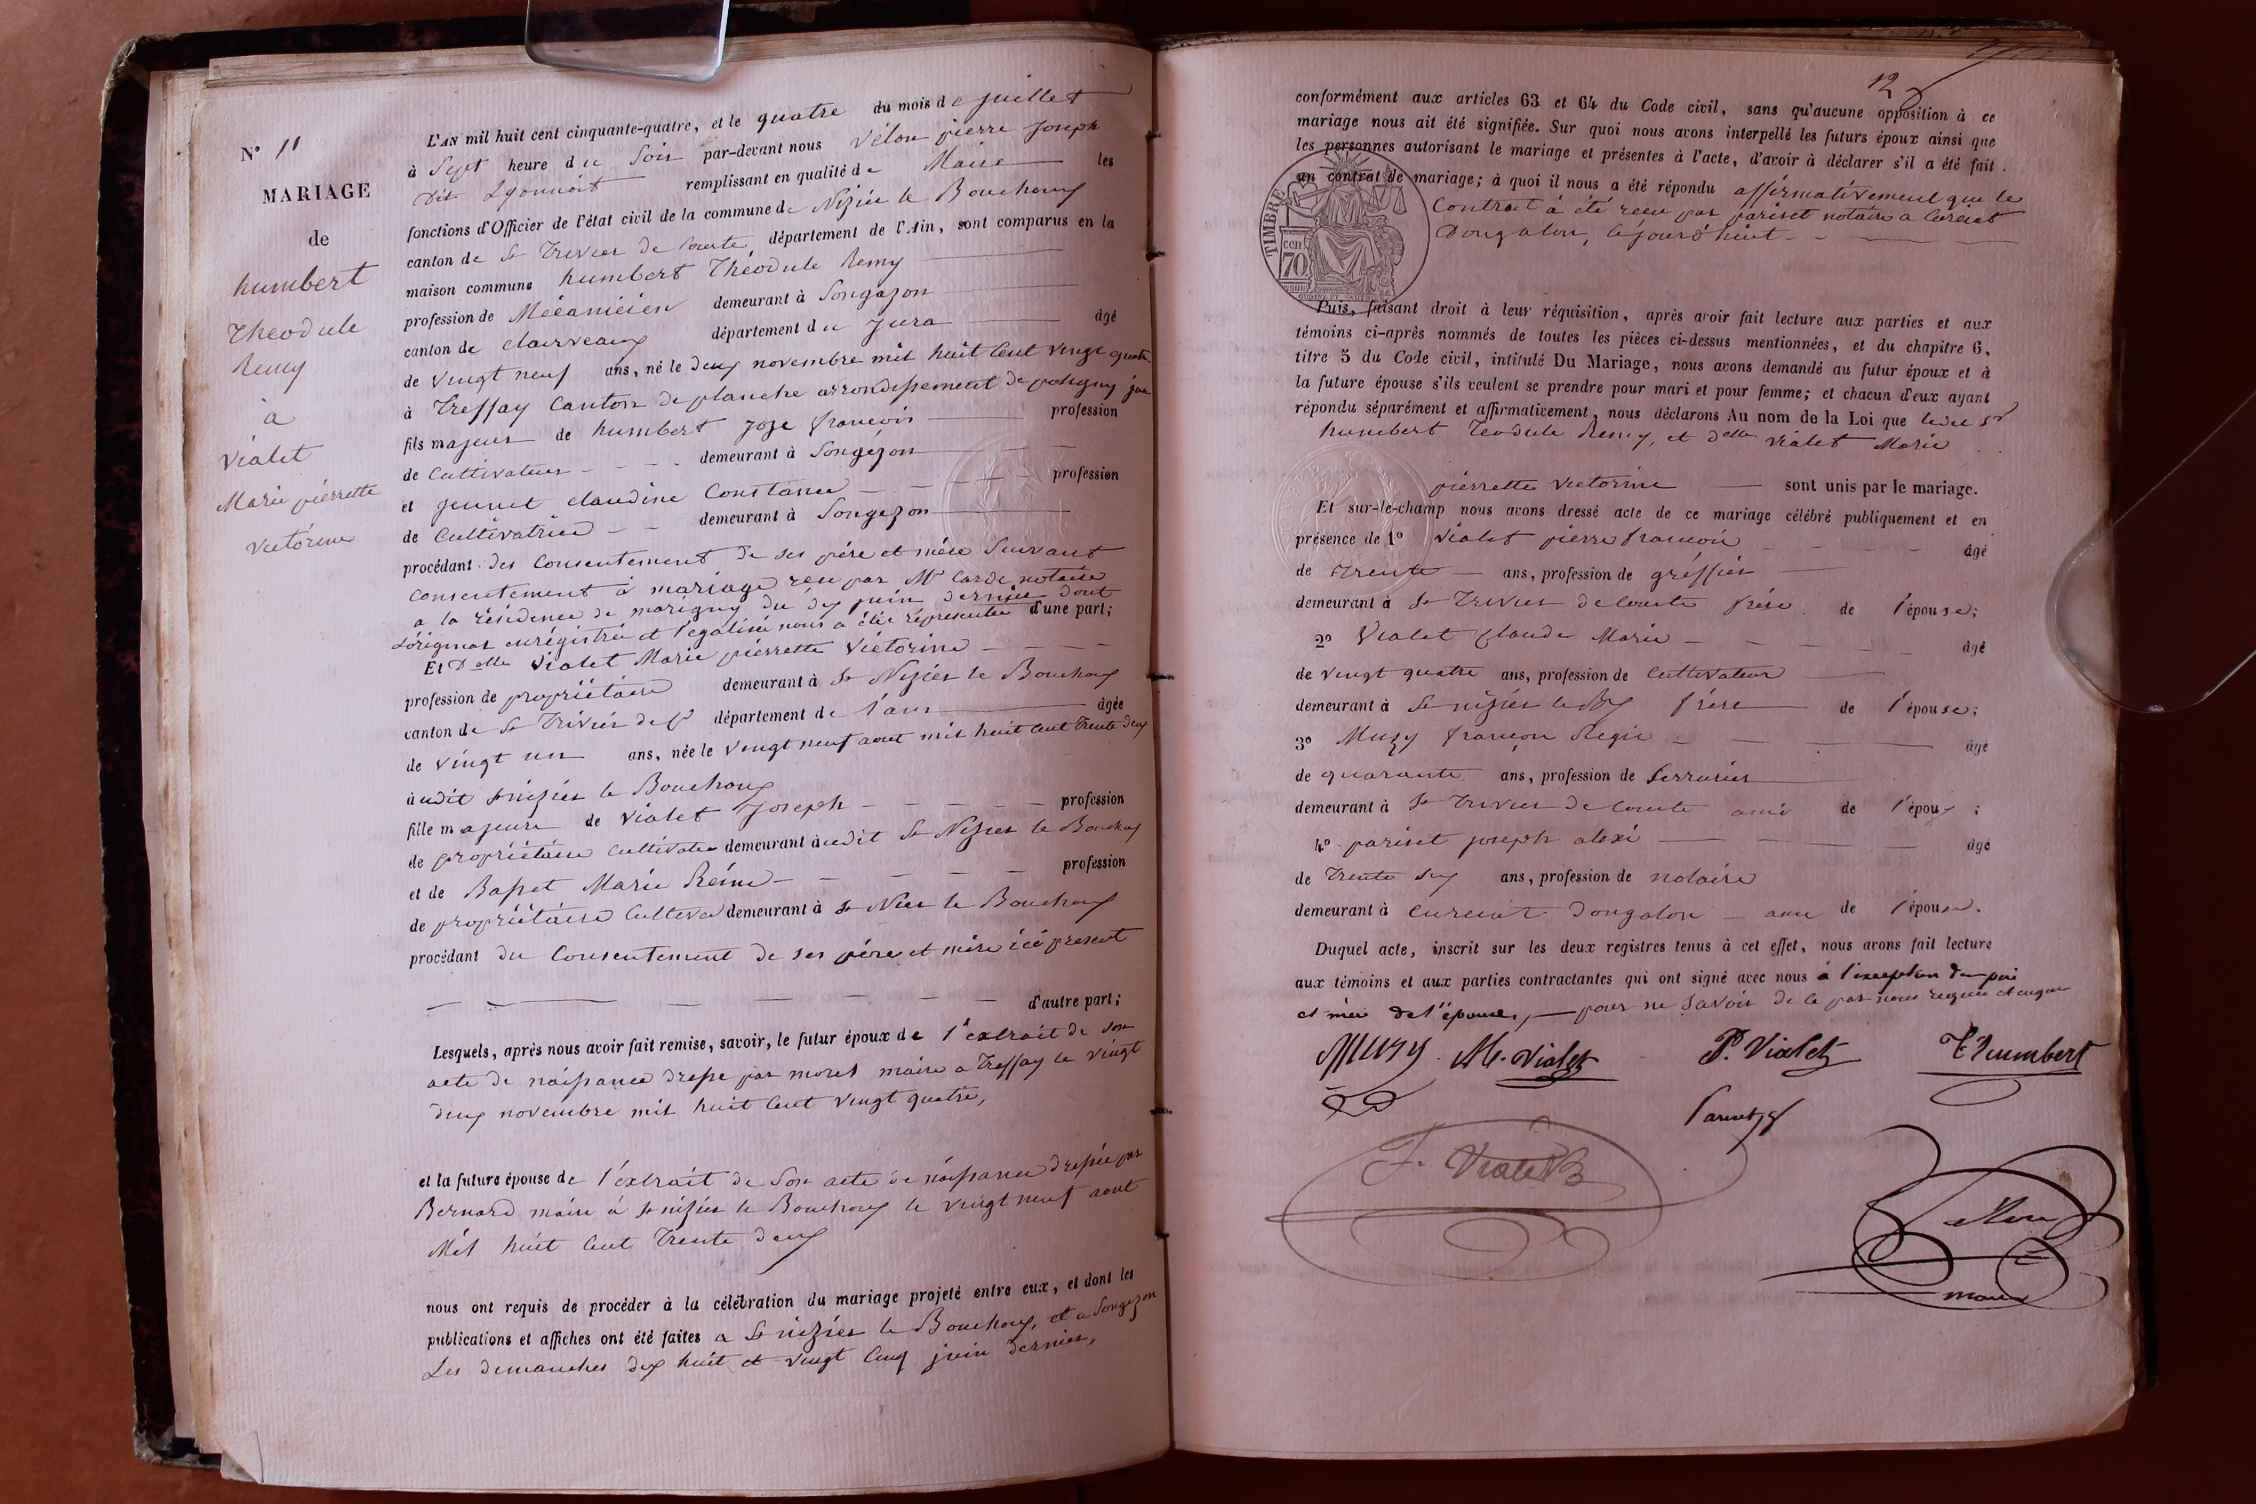 N° 11
MARIAGE
de
humbert
Theodule
Remy
à
vialet
Marie pierrette
victorine
L'AN mil huit cent cinquante-quatre, et le quatre du mois de juillet
à Sept heure du Soir par-devant nous Vélon pierre Joseph
dit Lyonnois remplissant en qualité de Maire les
fonctions d'Officier de l'état civil de la commune de Nizier le Bouchoux
canton de St Trivier de Courte, département de l'Ain, sont comparus en la
maison commune humbert Théodule Remy
profession de Mécanicien demeurant à Songezon
canton de clairveaux département du Jura âgé
de vingt neuf ans, né le deux novembre mil huit Cent vingt quatre
à Treffay Canton de planche arrondissement de poligny jura
fils majeur de humbert Joze francois profession
de Cultivateur demeurant à Songezon
et jeunet claudine Constance profession
de Cultivatrice demeurant à Songezon
procédant des Consentement de ses père et mère Suivant
consentement à mariage reçu par Mr Carde notaire
a la résidence de marigny du dix juin dernier dont
l'original enrégistré et légalisé nous a été représentée d'une part;
Et Delle Vialet Marie pierrette Victorine
profession de propriétaire demeurant à St Nizier le Bouchoux
canton de St Trivier de C département de l'ain âgée
de vingt un ans, née le vingt neuf aout mil huit Cent trente deux
audit St nizier le Bouchoux
fille majeure de vialet Joseph profession
de propriétaire cultivateur demeurant àudit St Nizier le Bouchoux
et de Basset Marie Reine profession
de propriétaire Cultiva demeurant à St Nier le Bouchoux
procédant du Consentement de ses père et mère ici present
d'autre part;
Lesquels, après nous avoir fait remise, savoir, le futur époux de l'extrait de son
acte de naissance dressé par morel maire a Treffay le vingt
deux novembre mil huit Cent vingt quatre,
et la future épouse de l'extrait de Son acte de naissance dressée par
Bernard maire à St nizier le Bouchoux le vingt neuf aout
Mil huit Cent Trente deux
nous ont requis de procéder à la célébration du mariage projeté entre eux, et dont les
publications et affiches ont été faites a St nizier le Bouchoux, et a Songezon
Les dimanches dix huit et vingt Cinq juin dernier,
12
conformément aux articles 63 et 64 du Code civil, sans qu'aucune opposition à ce
mariage nous ait été signifiée. Sur quoi nous avons interpellé les futurs époux ainsi que
les personnes autorisant le mariage et présentes à l'acte, d'avoir à déclarer s'il a été fait
un contrat de mariage; à quoi il nous a été répondu affirmativement que le
Contrat à été recu par pariset notaire a Curciat
Dongalon, le jourd'huit
TIMBRE
cen
70
Puis, faisant droit à leur réquisition, après avoir fait lecture aux parties et aux
témoins ci-après nommés de toutes les pièces ci-dessus mentionnées, et du chapitre 6,
titre 5 du Code civil, intitulé Du Mariage, nous avons demandé au futur époux et à
la future épouse s'ils veulent se prendre pour mari et pour femme; et chacun d'eux ayant
répondu séparément et affirmativement, nous déclarons Au nom de la Loi que ledit Sr
humbert Teodule Remy, et delle vialet Marie
pierrette victorine sont unis par le mariage.
Et sur-le-champ nous avons dressé acte de ce mariage célébré publiquement et en
présence de 1° vialet pierre francois âgé
de trente ans, profession de gréffier
demeurant à St Trivier de Courte frère de l'épouse;
2° Vialet Claude Marie âgé
de vingt quatre ans, profession de Cultivateur
demeurant à St nizier le Bx frère de l'épouse;
3° Muzy françois Regis âgé
de quarante ans, profession de Serrurier
demeurant à St Trivier de Courte ami de l'époux;
4° pariset joseph alexi âgé
de Trente six ans, profession de notaire
demeurant à Curciat Dongalon ami de l'épouse.
Duquel acte, inscrit sur les deux registres tenus à cet effet, nous avons fait lecture
aux témoins et aux parties contractantes qui ont signé avec nous à l'exception du père
et mère de l'épouse, pour ne savoir de ce par nous requis
Muzy M. Vialet P. Vialet T humbert
Pariset
F. Vialet
Velon
maire